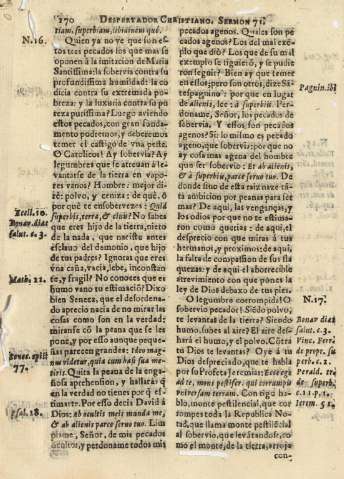 270 DESPERTADOR CHRISTIANO. SERMON 71.
tiam, superbiam, libidinem què.
N. 16.
Quien ya no ve que son estos
tres pecados los que mas se
oponen à la imitacion de Maria
Santissima: la sobervia contra su
profundissima humildad: la codicia
contra su extremada pobreza:
y la luxuria contra su pureza
purissima? Luego aviendo
estos pecados, con gran fundamento
podremos, y deberemos
temer el castigo de vna peste.
O Catolicos! Ay sobervia? Ay
legumbres que se atrevan à levantarse
de la tierra en vapores
vanos? Hombre: mejor diré:
polvo, y ceniza: de què, ò
por què te ensobervezes: Quid
superbis, terra, & cinis? No sabes
que eres hijo de la tierra, nieto
de la nada, que naciste antes
esclavo del demonio, que hijo
de tus padres? Ignoras que eres
vna caña, vacia, lebe, inconstante,
y fragil? No conoces que es
humo vano tu estimaciõ? Dixo
bien Seneca, que el desordenado
aprecio nacia de no mirar las
cosas como son en la verdad:
miranse cõ la peana que se les
pone, y por esso aunque pequeñas
parecen grandes:
Quita la peana de la engañosa
aprehension, y hallarà
en la verdad no tienes por què
Por esso decia David à
Dios: ab occultis meis munda me,
& ab alienis parce servo tuo. Limpiame,
Señor, de mis pecados
ocultos, y perdoname todos mis
Eccli. 10.
Math. 11.
77.
Psal. 18.
pecados agenos. Quales son pecados
agenos? Los del mal exemplo
que diò? Los que de su mal
exemplo se siguieron, y se pudieron
seguir? Bien ay que temer
en essos; pero son otros, dize
por que en lugar
de alienis, lee: à superbia. Perdoname,
Señor, los pecados de
sobervia. Y essos, son pecados
agenos? Si: lo mismo es pecado
ageno, que sobervia; porque no
ay cosa mas agena del hombre
que ser sobervio: & ab alienis,
& à superbia, parce servo tuo. De
donde sino de esta raiz nace tanta
ambicion por peanas para ser
mas? De aqui, las venganças, y
los odios por que no te estimaron
como querias: de aqui, el
desprecio con que miras à tus
hermanos, y proximos: de aqui,
la falta de compassion de sus flaquezas:
y de aqui el aborrecible
atrevimiento con que pones la
ley de Dios debaxo de tus pies.
O legumbre corrompida! O
sobervio pecador! Siendo polvo,
te levantas de la tierra? Siendo
humo, subes al ayre? El ayre desharà
el humo, y el polvo. Contra
tu Dios te levantas? Oye à tu
Dios despreciado, que te habla
por su Profeta Jeremias: Ecce ego
ad te, mons pestifer, qui corrumpis
universam terram. Contigo hablo,
monte pestilencial, que corrompes
toda la Republica. Notad,
que llama monte pestilencial
al sobervio, que levantandose, como
el monte, de la tierra, arroja
con-
Pagnin. ibi
N. 17.
Jerem. 51.